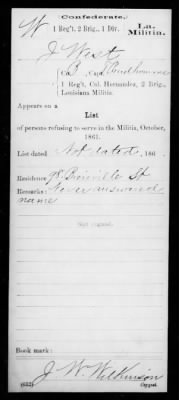 Confederate.
W 1 Reg't, 2 Brig., 1 Div. La. Militia.
J West
Co. B, Capt. Prudhomme
1 Reg't, Col. Hernandez, 2 Brig.,
Louisiana Militia.
Appears on a
List
of persons refusing to serve in the Militia, October,
1861.
List dated Not dated, 186 .
Residence 98 Bienville St
Remarks: Never answered
name
Not signed.
Book mark:
J. W. Wilkinson
(652) Copyist.